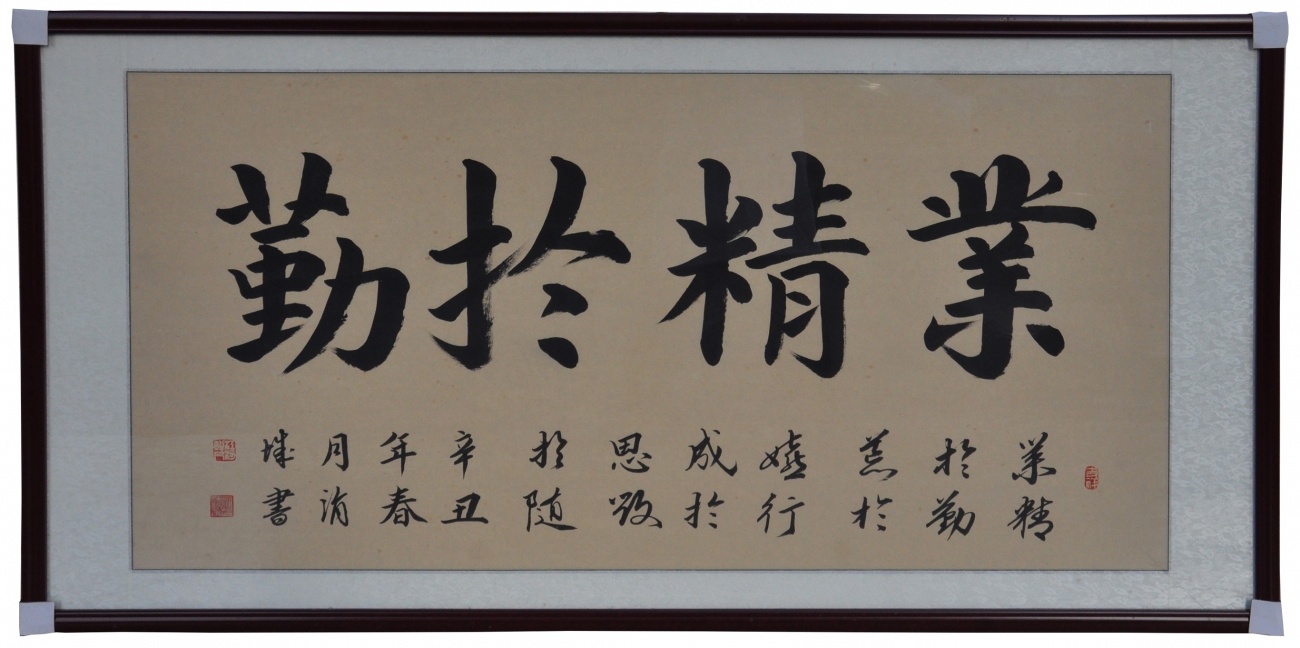 業精於勤
業精
於勤
荒於
嬉行
成於
思毁
於随
辛丑
年春
月
城書